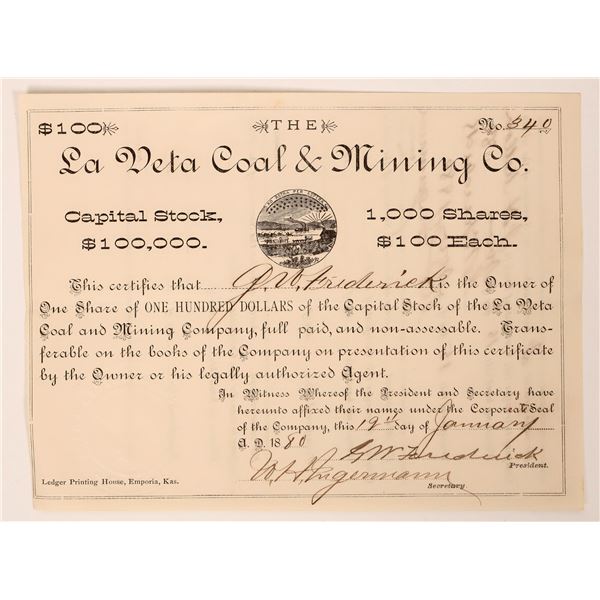 $100 THE No. 340
La Veta Coal & Mining Co.
AD ASTRA PER ASPERA
Capital Stock, $100,000.
1,000 Shares, $100 Each.
This certifies that G. W. Frederick is the Owner of
One Share of ONE HUNDRED DOLLARS of the Capital Stock of the La Veta
Coal and Mining Company, full paid, and non-assessable. Trans-
ferable on the books of the Company on presentation of this certificate
by the Owner or his legally authorized Agent.
In Witness Whereof the President and Secretary have
hereunto affixed their names under the Corporate Seal
of the Company, this 19th day of January
A. D. 1880
G W Frederick
President.
Secretary.
Ledger Printing House, Emporia, Kas.